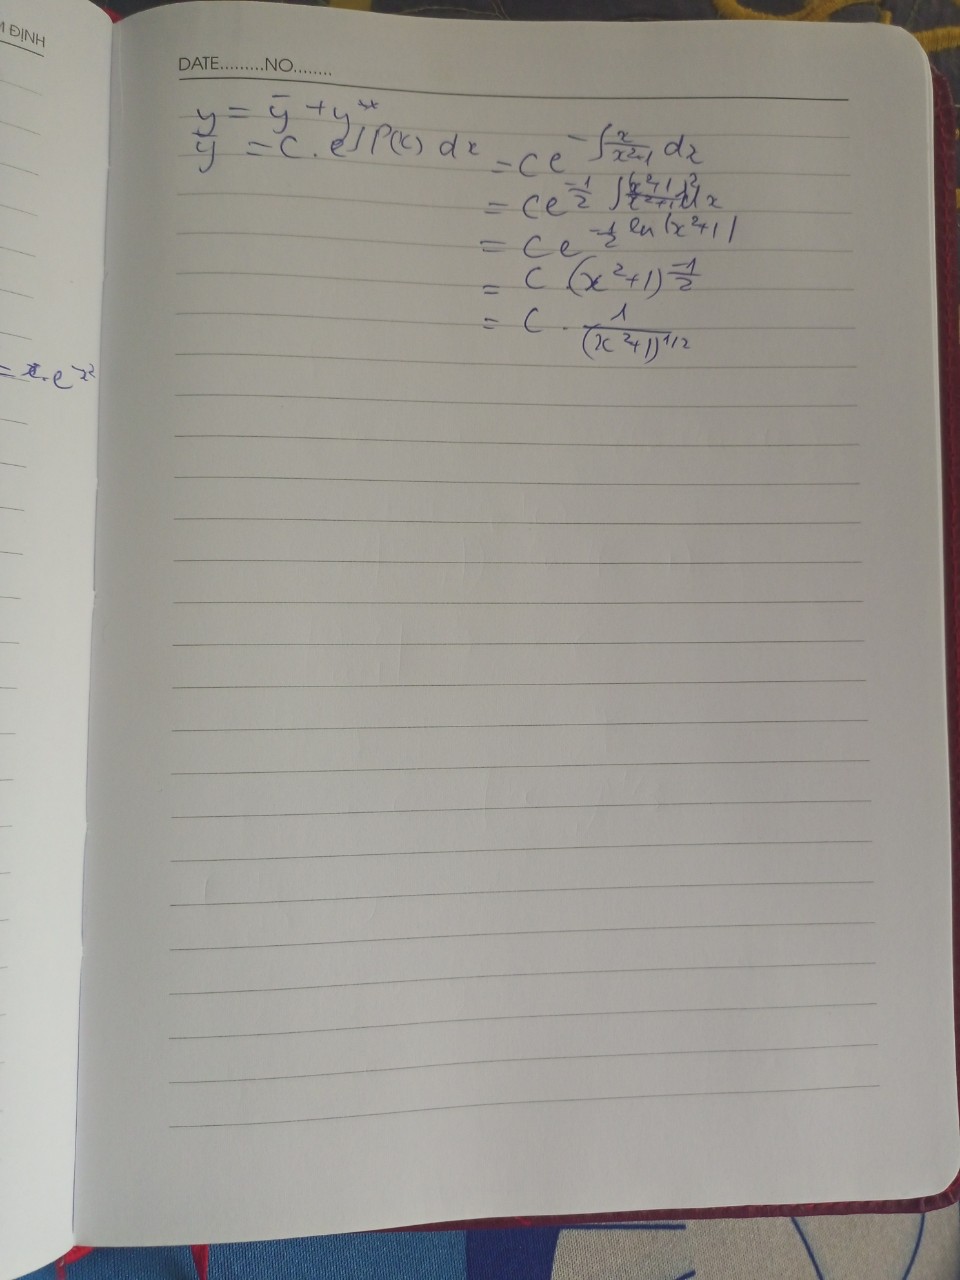 M ĐỊNH
DATE.........NO........
y = ȳ + y*
ȳ = C . e∫P(x) dx = C e^-∫ x/(x²+1) dx
= C e^-1/2 ∫ (x²+1)'/(x²+1) dx
= C e^-1/2 ln|x²+1|
= C (x²+1)^-1/2
= C . 1/(x²+1)^1/2